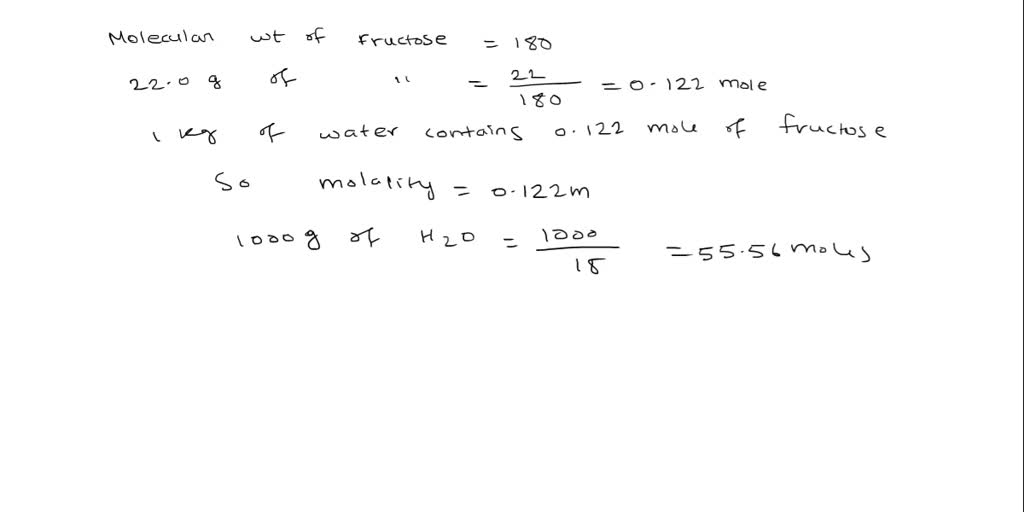 Molecular wt of Fructose = 180
22.0 g of " = 22/180 = 0.122 mole
1 kg of water contains 0.122 mole of fructose
So molality = 0.122m
1000 g of H2O = 1000/18 = 55.56 moles